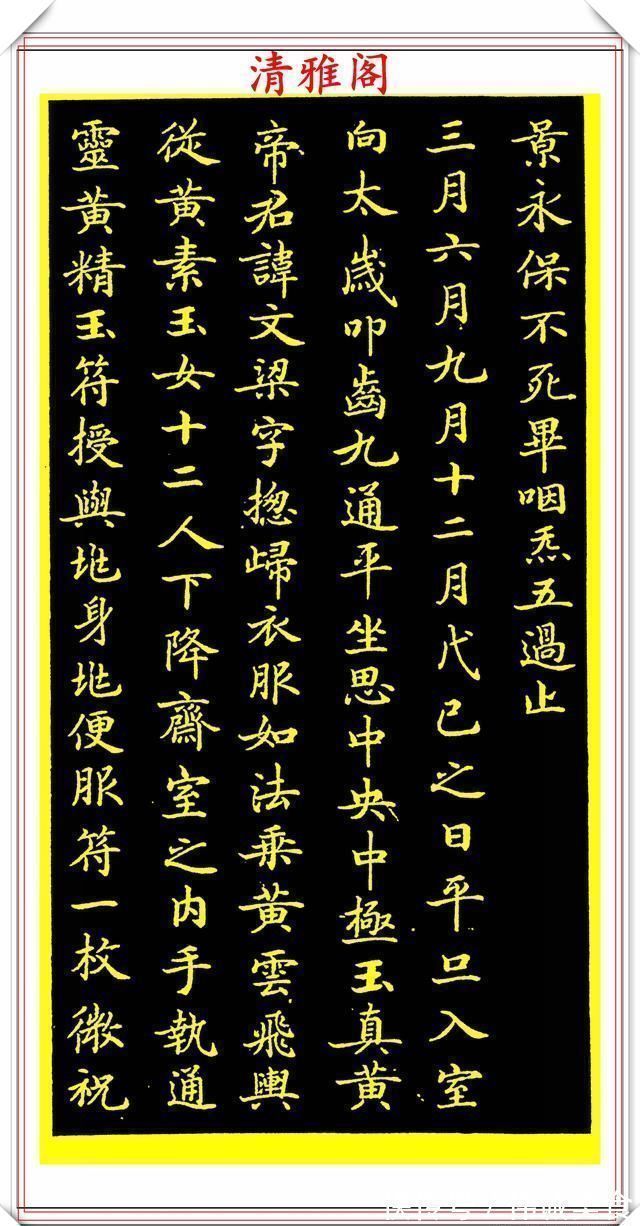 清雅阁
景永保不死畢咽炁五過止
三月六月九月十二月戊巳之日平旦入室
向太歲叩齒九通平坐思中央中極玉真黄
帝君諱文梁字揔歸衣服如法乘黄雲飛輿
從黄素玉女十二人下降齋室之内手執通
靈黄精玉符授與地身地便服符一枚微祝